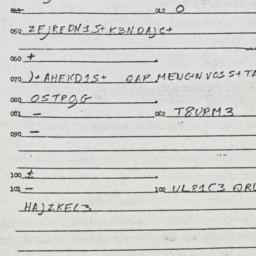 012 O
050 ZEJREDN1S+K3NDAJC+
060 +
070 )+AHEKD1S+ QAP MENGNVCSS+TA
080 OSTPQG
081 - 082 T8URM3
090 -
100 +
101 - 102 UL81C3 QRU
HAJZKEL3